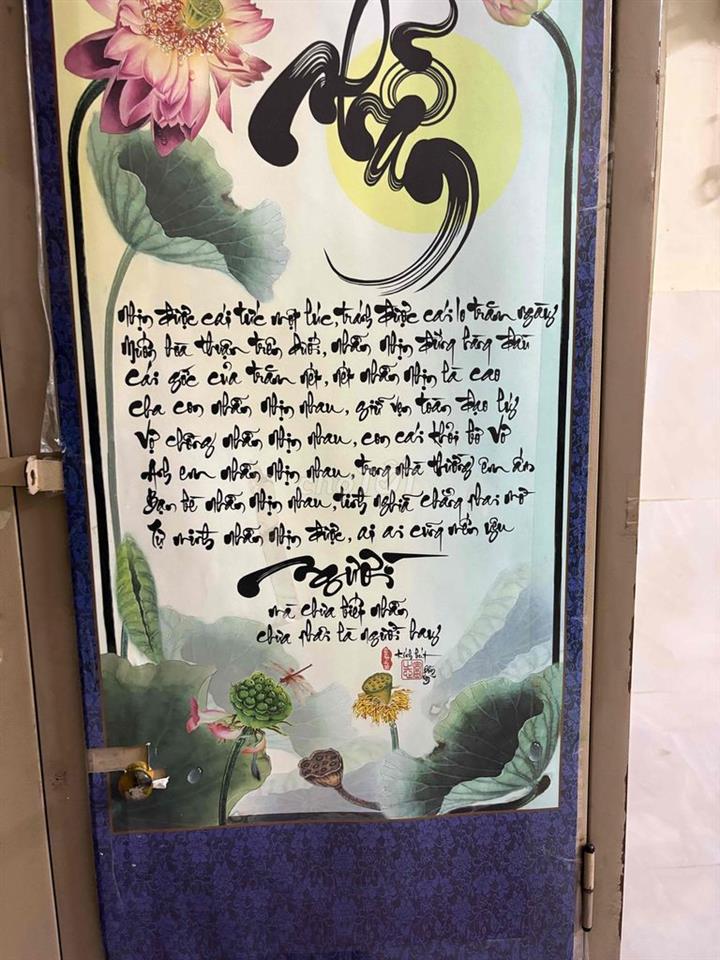 Nhẫn
Nhịn được cái tức một lúc, tránh được cái lo trăm ngày
Muốn hòa thuận trên dưới, nhẫn nhịn đứng hàng đầu
Cái gốc của trăm nết, nết nhẫn nhịn là cao
Cha con nhẫn nhịn nhau, giữ vẹn toàn đạo lý
Vợ chồng nhẫn nhịn nhau, con cái khỏi bơ vơ
Anh em nhẫn nhịn nhau, trong nhà thường êm ấm
Bạn bè nhẫn nhịn nhau, tình nghĩa chẳng phai mờ
Tự mình nhẫn nhịn được, ai ai cũng mến yêu
Người
mà chưa biết nhẫn
chưa phải là người hay
kính bút